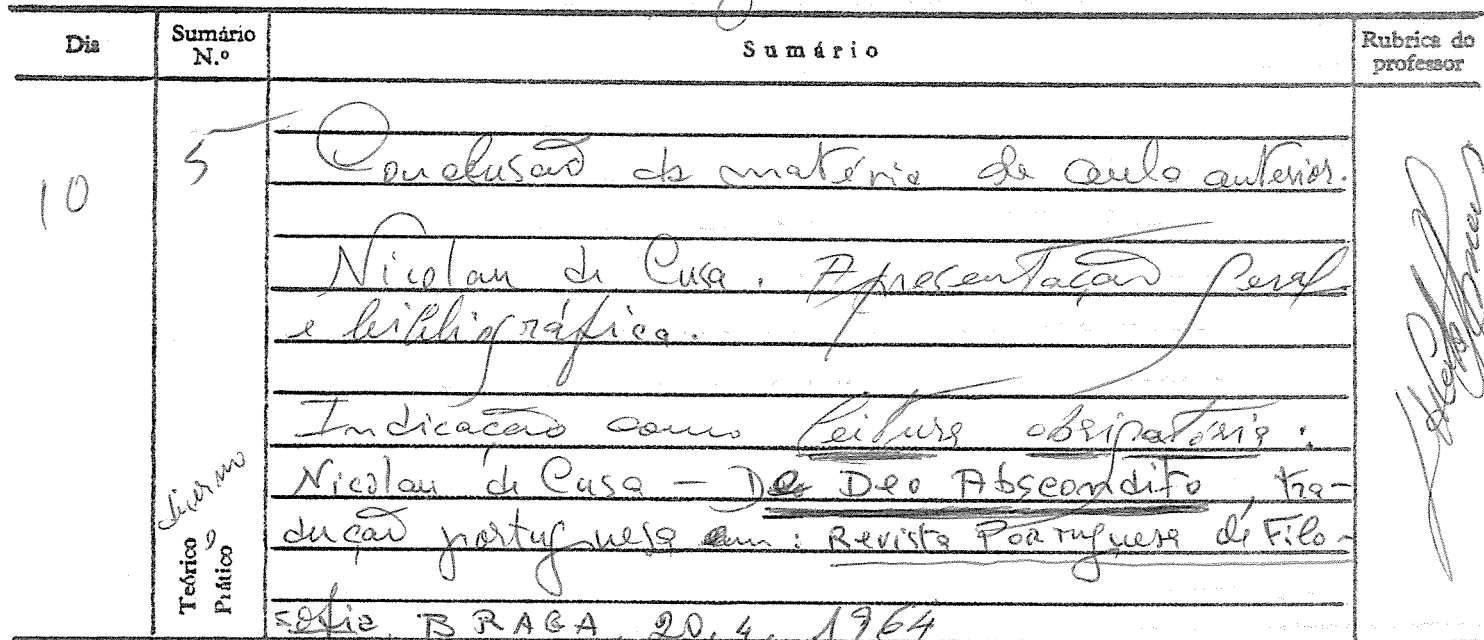 Dia
Sumário N.º
Sumário
Rubrica do professor
10
5
Conclusão da matéria da aula anterior.
Nicolau de Cusa. Apresentação geral
e bibliográfica.
Indicação como leitura obrigatória:
Nicolau de Cusa — De Deo Abscondito, tra-
dução portuguesa em: Revista Portuguesa de Filo-
sofia, BRAGA, 20, 4, 1964
diurno
Teórico
Prático